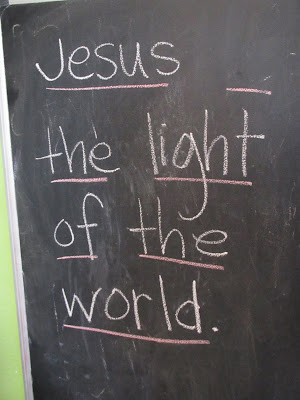 Jesus __
the light
of the
world.